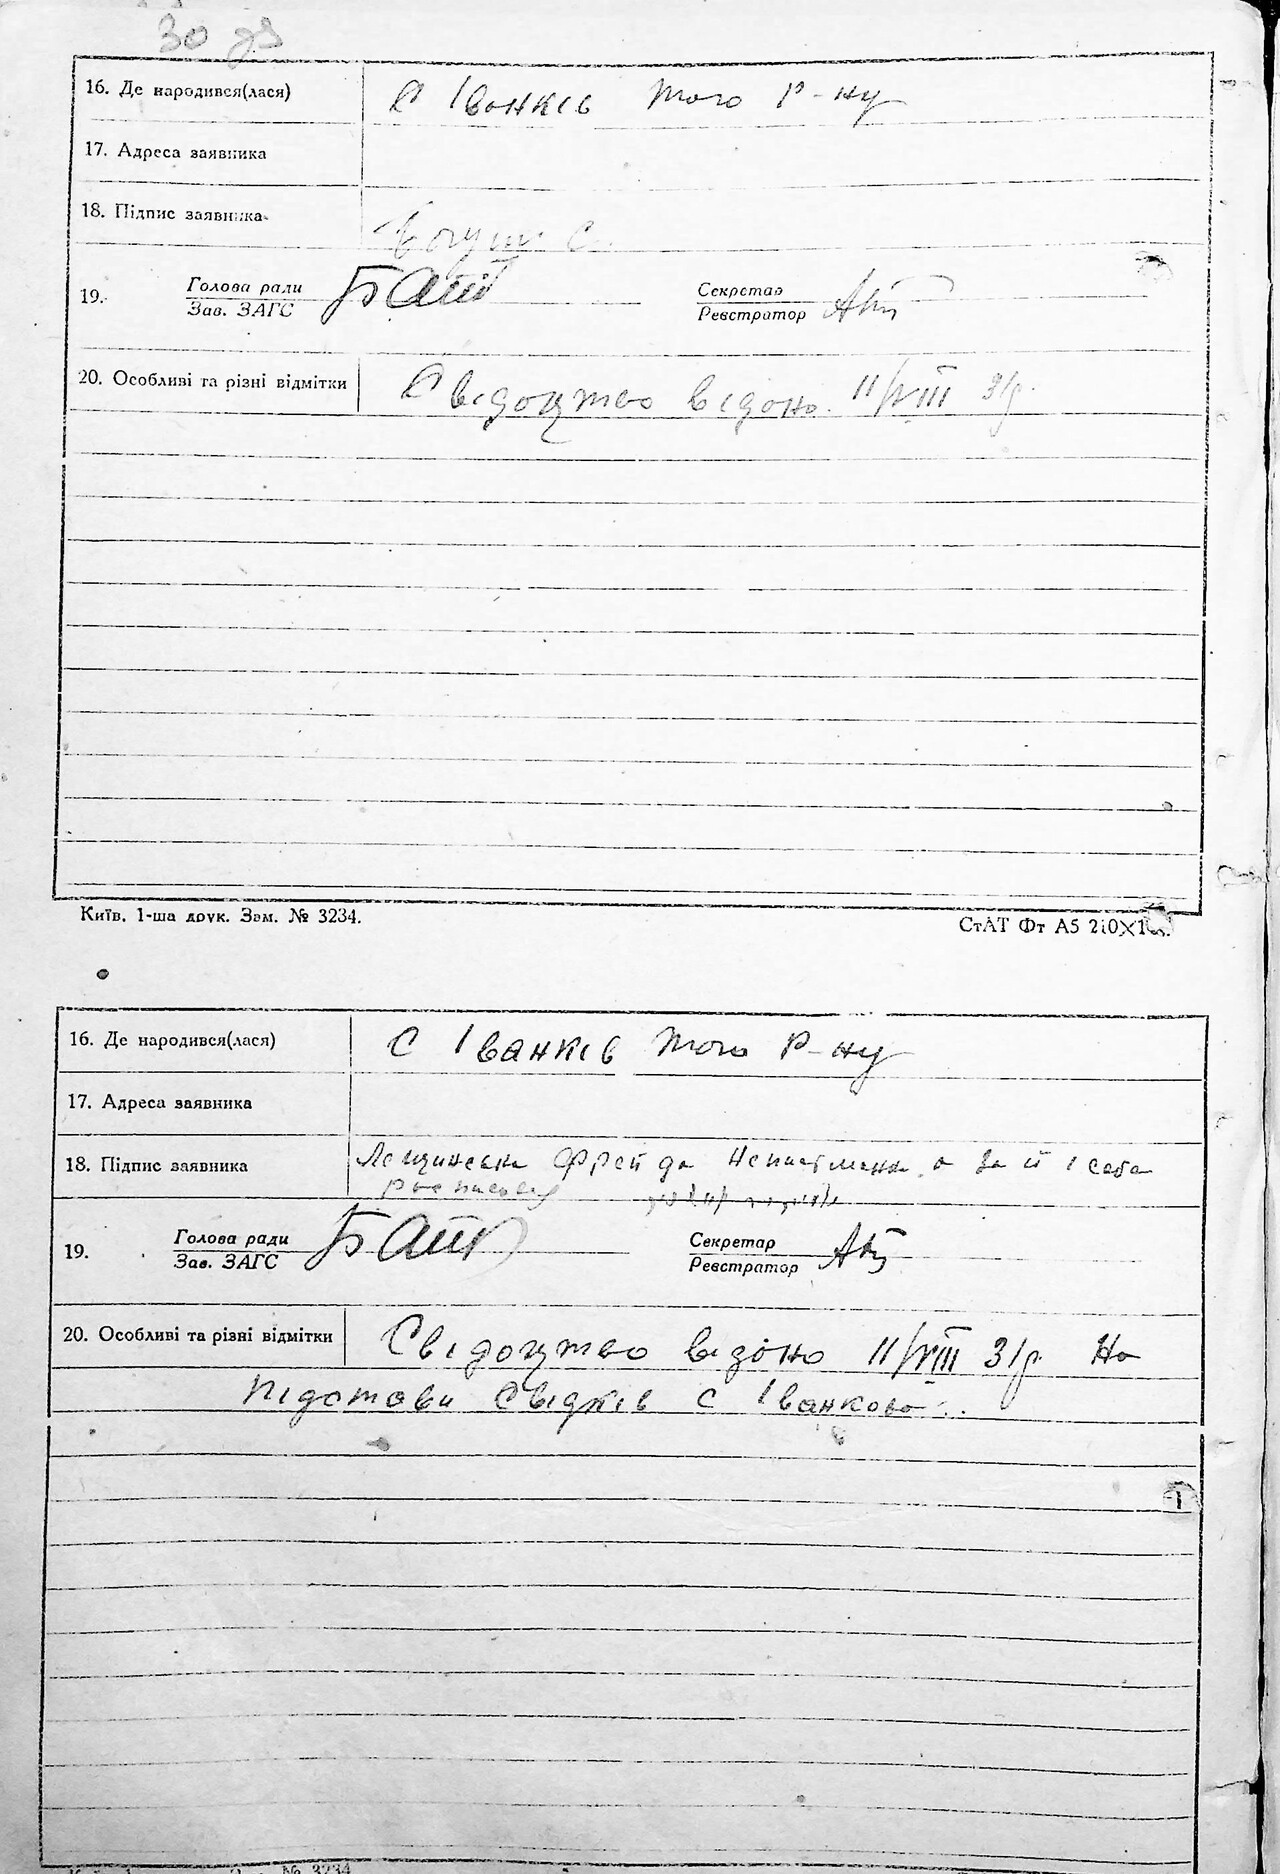 30
16. Де народився(лася) с Іванків того р-ну
17. Адреса заявника
18. Підпис заявника
19. Голова ради
Зав. ЗАГС
Секретар
Реєстратор
20. Особливі та різні відмітки Свідоцтво відоно 11/VIII 31р.
Київ, 1-ша друк. Зам. № 3234.
СтАТ Фт А5 210×1
16. Де народився(лася) с Іванків того р-ну
17. Адреса заявника
18. Підпис заявника Лещинська Фрейда Неписьменна а за її і себе
19. Голова ради
Зав. ЗАГС
Секретар
Реєстратор
20. Особливі та різні відмітки Свідоцтво відоно 11/VIII 31р. На
підстави свідків с Іванкова
№ 3234